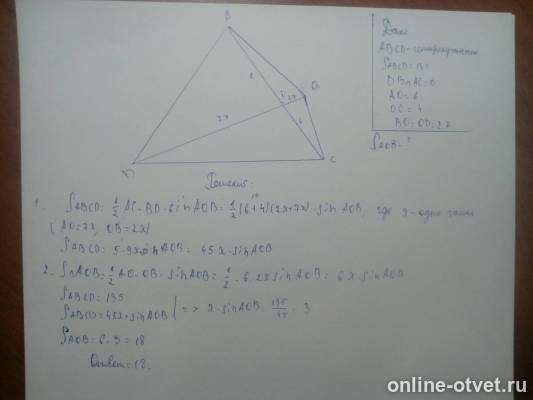 Дано
ABCD-четырехугольник
S ABCD=135
DB∩AC=O
AO=6
OC=4
BO:OD=2:7
S AOB-?
Решение:
1. S ABCD: 1/2 AC·BD·sin AOB= 1/2 (6+4)(2x+7x)·sin AOB, где x-одна
(DO=7x, OB=2x)
S ABCD: 5·9x·sin AOB= 45x·sin AOB
2. S△AOB=1/2 AO·OB·sin AOB= 1/2·6·2x sin AOB= 6x·sin AOB
S ABCD: 135
S ABCD=45x·sin AOB => x·sin AOB= 135/45=3
S AOB: 6·3=18
Ответ: 18.
online-otvet.ru